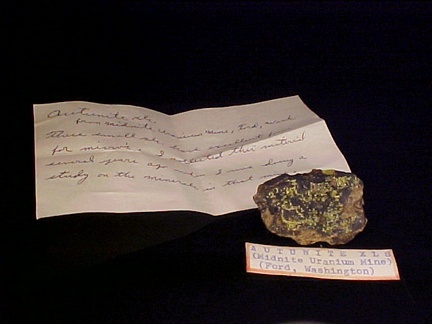 Autunite xls.
from Midnite Uranium Mine, Ford, Wash
These small xls. are excellent
for micros. I collected this material
several years ago when I was doing a
study on the minerals in that
AUTUNITE XLS
(Midnite Uranium Mine)
(Ford, Washington)